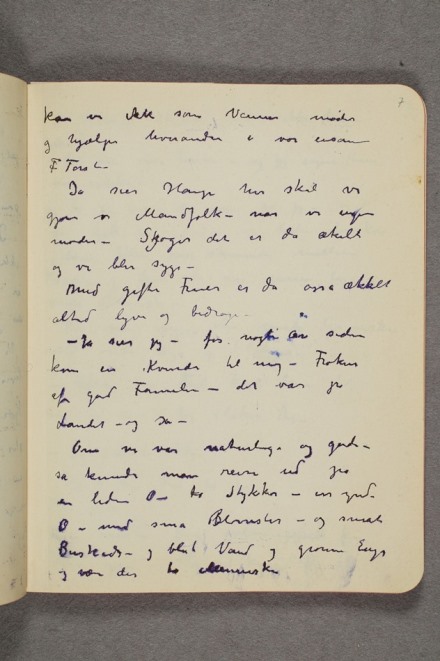 7
kan vi ikke som Venner mødes
og hjælpe hverandre i vor ensom
Tørst –
Ja sier Hauge hva skal vi
gjøre vi Mandfolk – naar vi ingen
møder – Skjøger det er da ækelt
og vi blir syge –
Med gifte Fruer er da ogsa ækkelt
altid lyve og bedrage –
– Ja sier jeg – for nogle år siden
kom en Kvinde til mig – Frøken
af god Familie – det var pa
Landet – og sa –
Om vi var naturlige og gode –
sa kunde man reise ud pa
en liden Ø – to Stykker – en grøn
Ø – med sma Blomster – og smat
Buskads – og blat Vand og grønne Enge
og være der to Mennesker